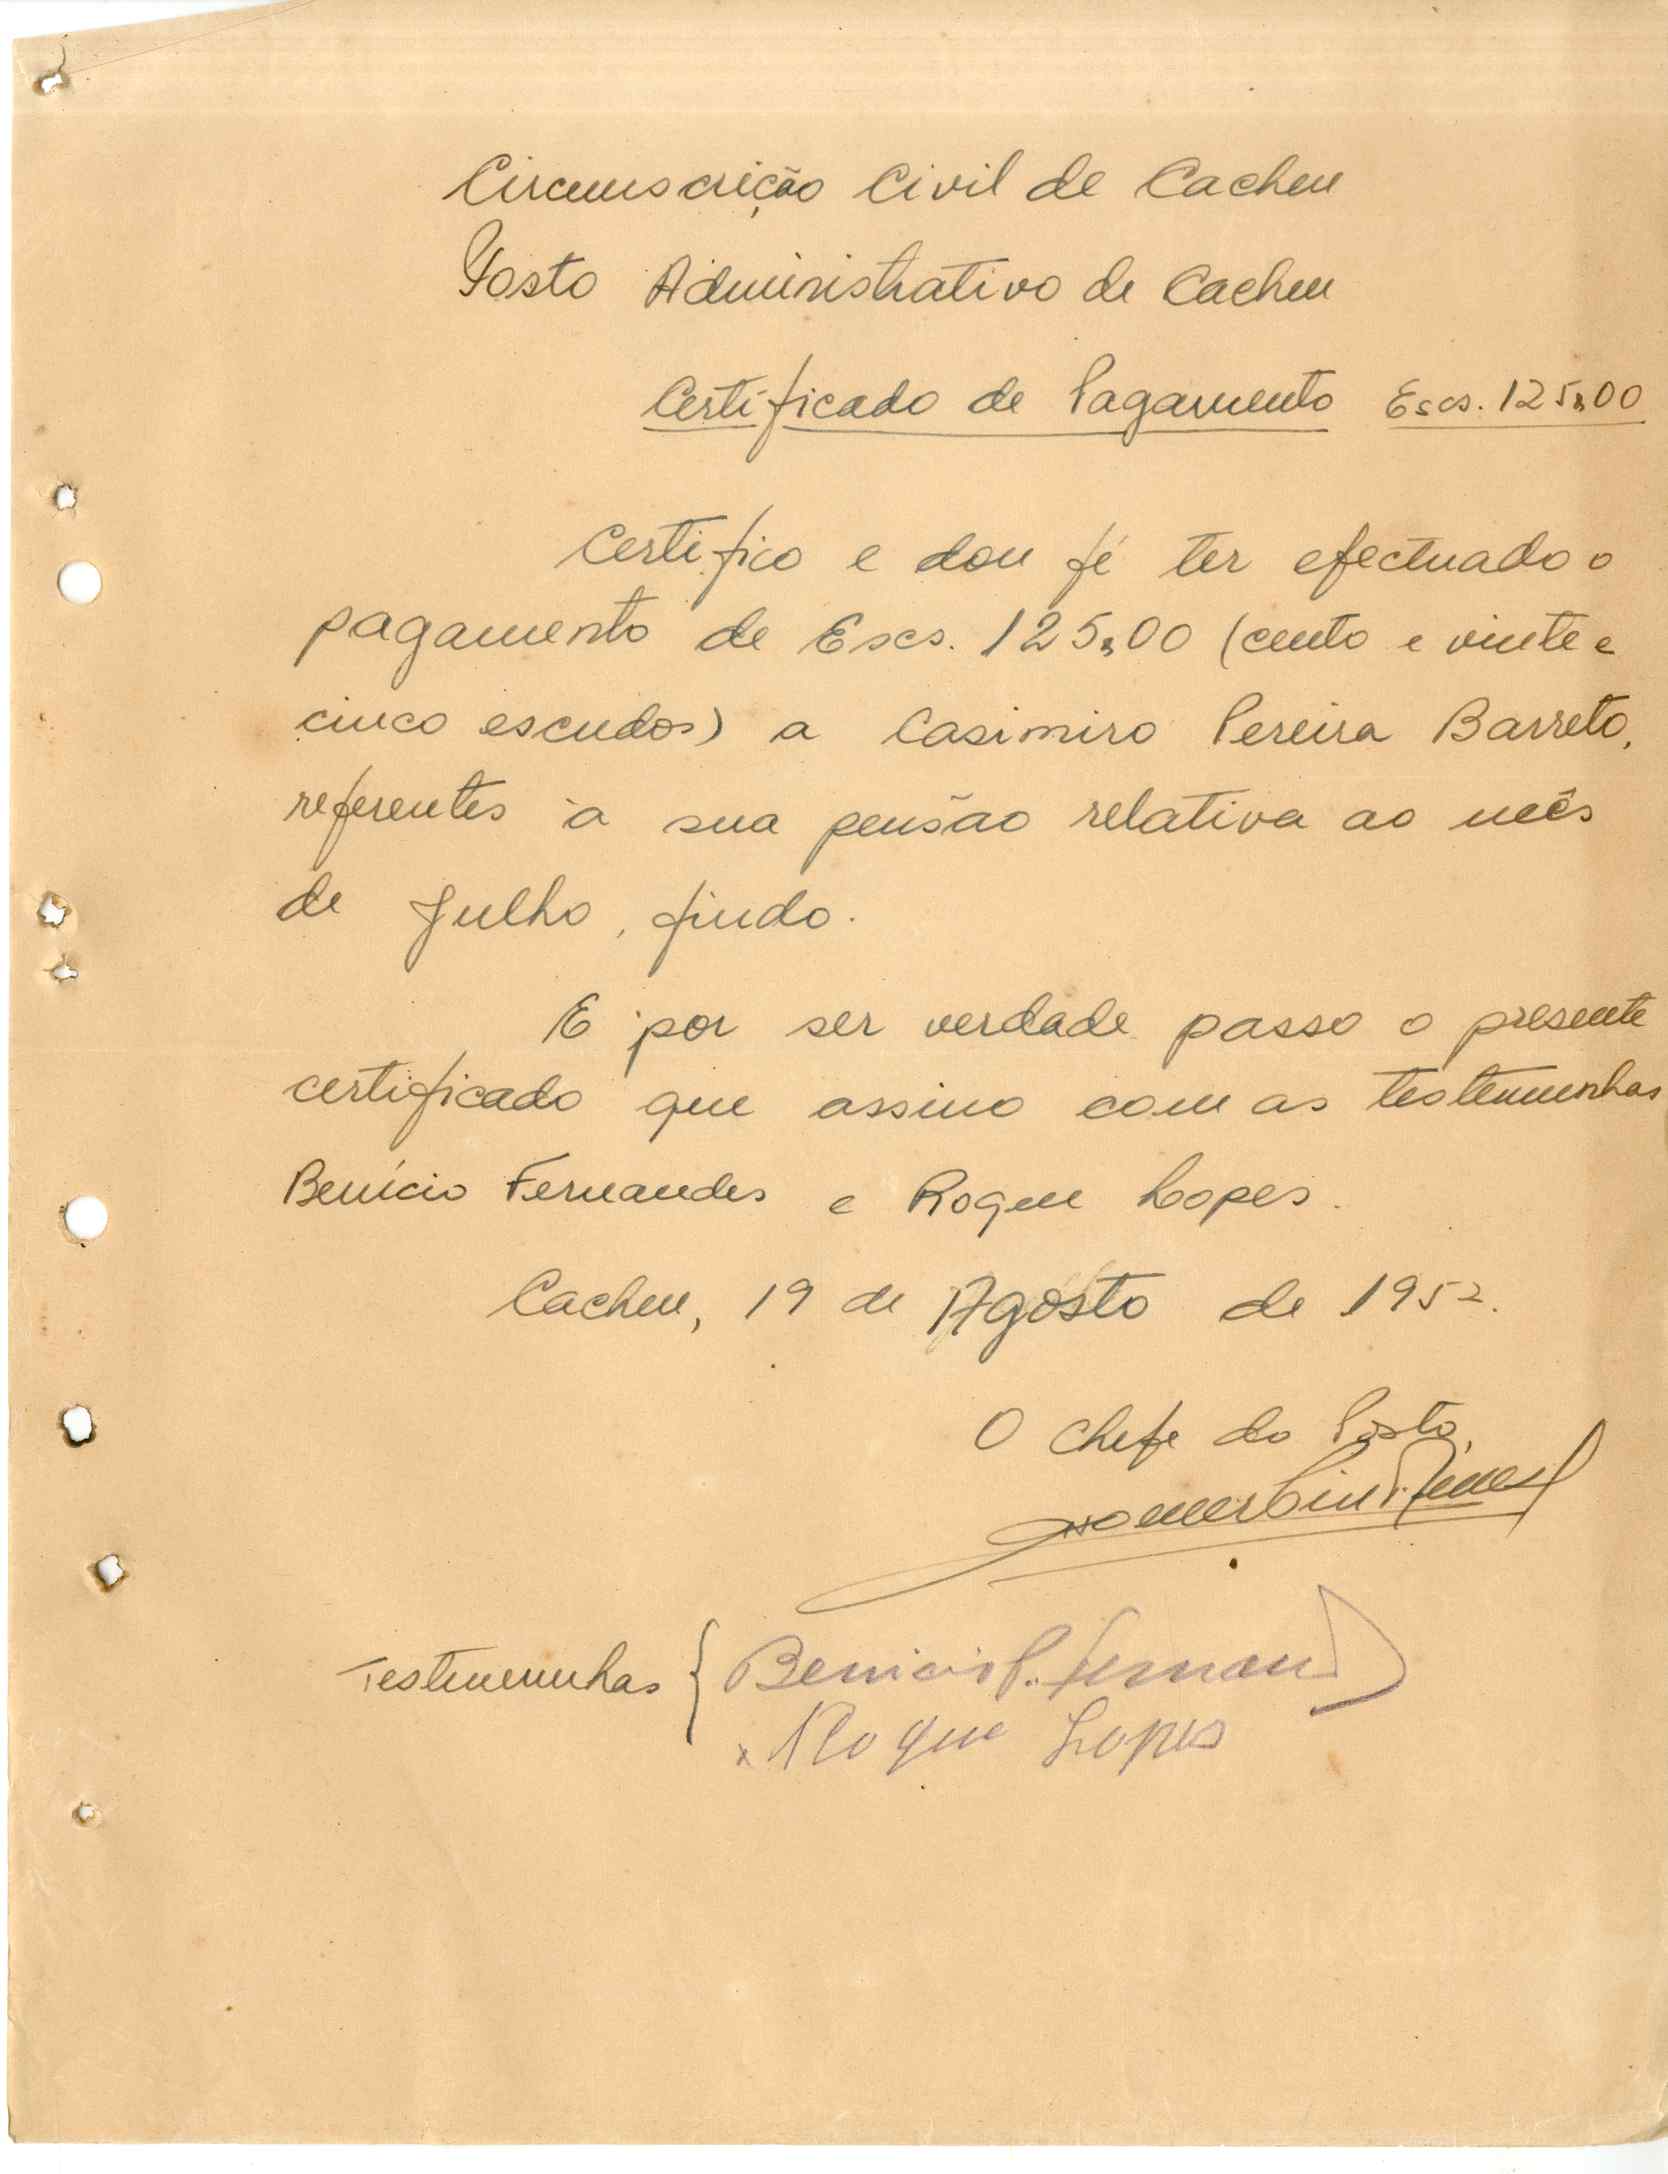 Circunscrição Civil de Cacheu
Posto Administrativo de Cacheu
Certificado de Pagamento Escs. 125,00
Certifico e dou fé ter efectuado o
pagamento de Escs. 125,00 (cento e vinte e
cinco escudos) a Casimiro Pereira Barreto,
referentes à sua pensão relativa ao mês
de Julho, findo.
E por ser verdade passo o presente
certificado que assino com as testemunhas
Benício Fernandes e Roque Lopes.
Cacheu, 19 de Agosto de 1952.
O Chefe do Posto,
Testemunhas { Benicio P. Fernand
x Roque Lopes